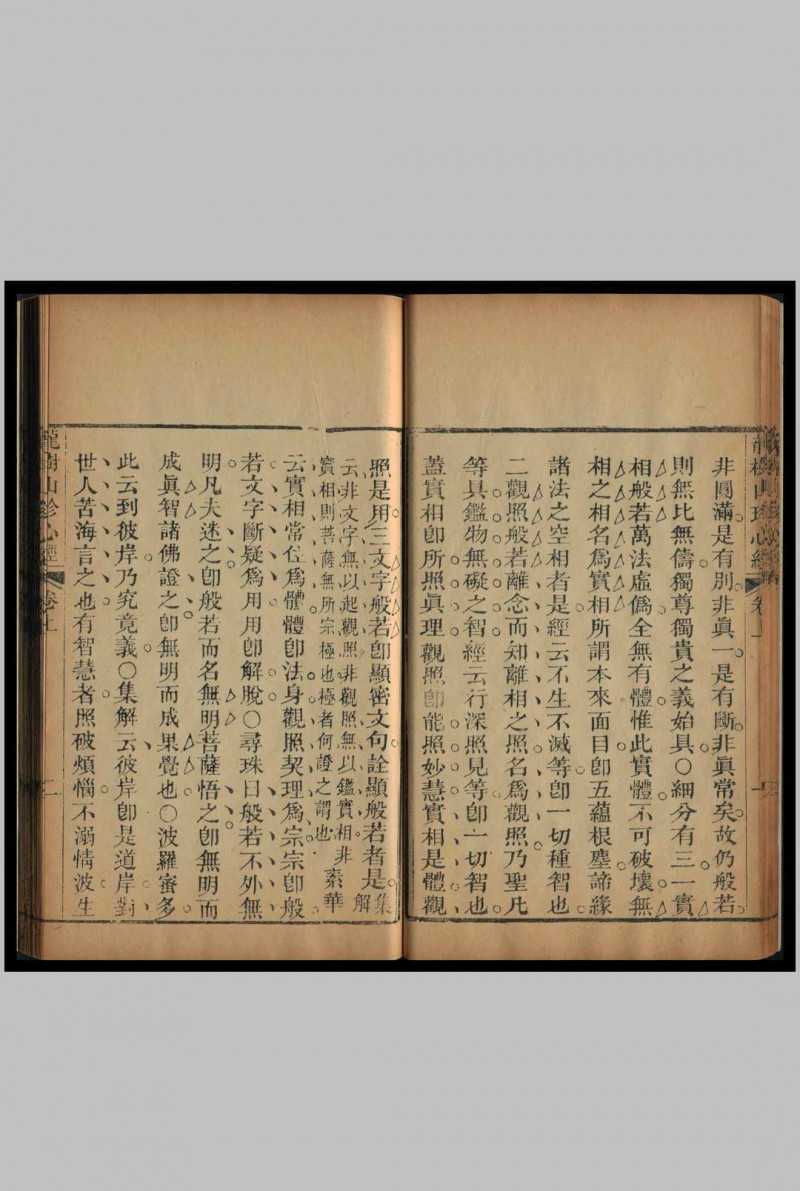 非圓滿是有別非眞一是有斷非眞常矣故仍般若
則無比無儔獨尊獨貴之義始具〇細分有三一實
相般若萬法虛僞全無有體惟此實體不可破壞無
相之相名爲實相所謂本來面目卽五蘊根塵諦緣
諸法之空相者是經云不生不滅等卽一切種智也
二觀照般若離念而知離相之照名爲觀照乃聖凡
等具鑑物無礙之智經云行深照見等卽一切智也
蓋實相卽所照眞理觀照卽能照妙慧實相是體觀
照是用三文字般若卽顯密文句詮顯般若者是集解
云非文字無以起觀照非觀照無以鑑實相非
實相則菩薩無所宗極也極者何證之謂也素華
云實相常住爲體體卽法身觀照契理爲宗宗卽般
若文字斷疑爲用用卽解脫〇尋珠曰般若不外無
明凡夫迷之卽般若而名無明菩薩悟之卽無明而
成眞智諸佛證之卽無明而成果覺也〇波羅蜜多
此云到彼岸乃究竟義〇集解云彼岸卽是道岸對
世人苦海言之也有智慧者照破煩惱不溺情波生
龍樹山 心經 卷上 二